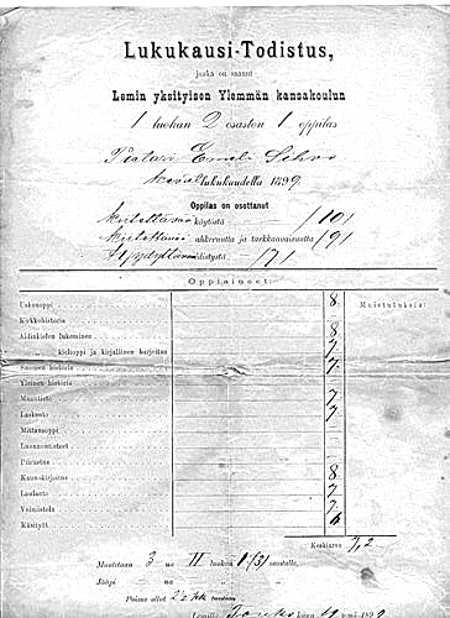 Lukukausi-Todistus,
jonka on saanut
Lemin yksityisen Ylemmän kansakoulun
1 luokan 2 osaston 1 oppilas
Pietari Emeli Sihvo
kevät lukukaudella 1899
Oppilas on osottanut
kiitettävää käytöstä — /10/
kiitettävää ahkeruutta ja tarkkaavaisuutta /9/
tyydyttävää edistystä — /7/
Oppiaineet:
Uskonoppi 8 Muistutuksia:
Kirkkohistoria —
Äidinkielen lukeminen 8
" kielioppi ja kirjallinen harjoitus 7
Suomen historia 7
Yleinen historia —
Maantieto 7
Laskento 7
Mittausoppi —
Luonnontieteet —
Piirustus —
Kaunokirjoitus 8
Laulanto 7
Voimistelu 7
Käsityöt 6
Keskiarvo 7,2
Muutetaan 3 na II luokan 1 (3) osastolle,
Jääpi — na — " — "
Poissa ollut 2
Lemillä, kuun p:nä 1899